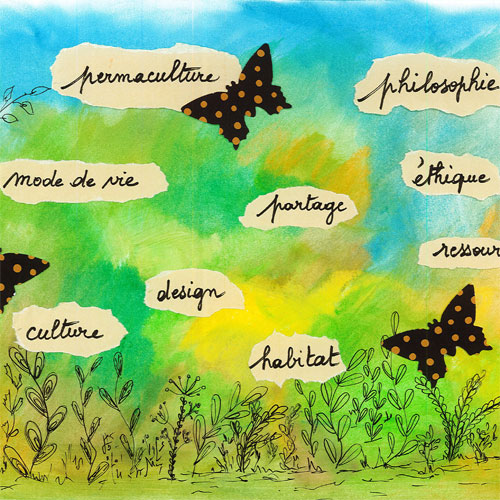 permaculture
philosophie
mode de vie
éthique
partage
ressour
design
culture
habitat